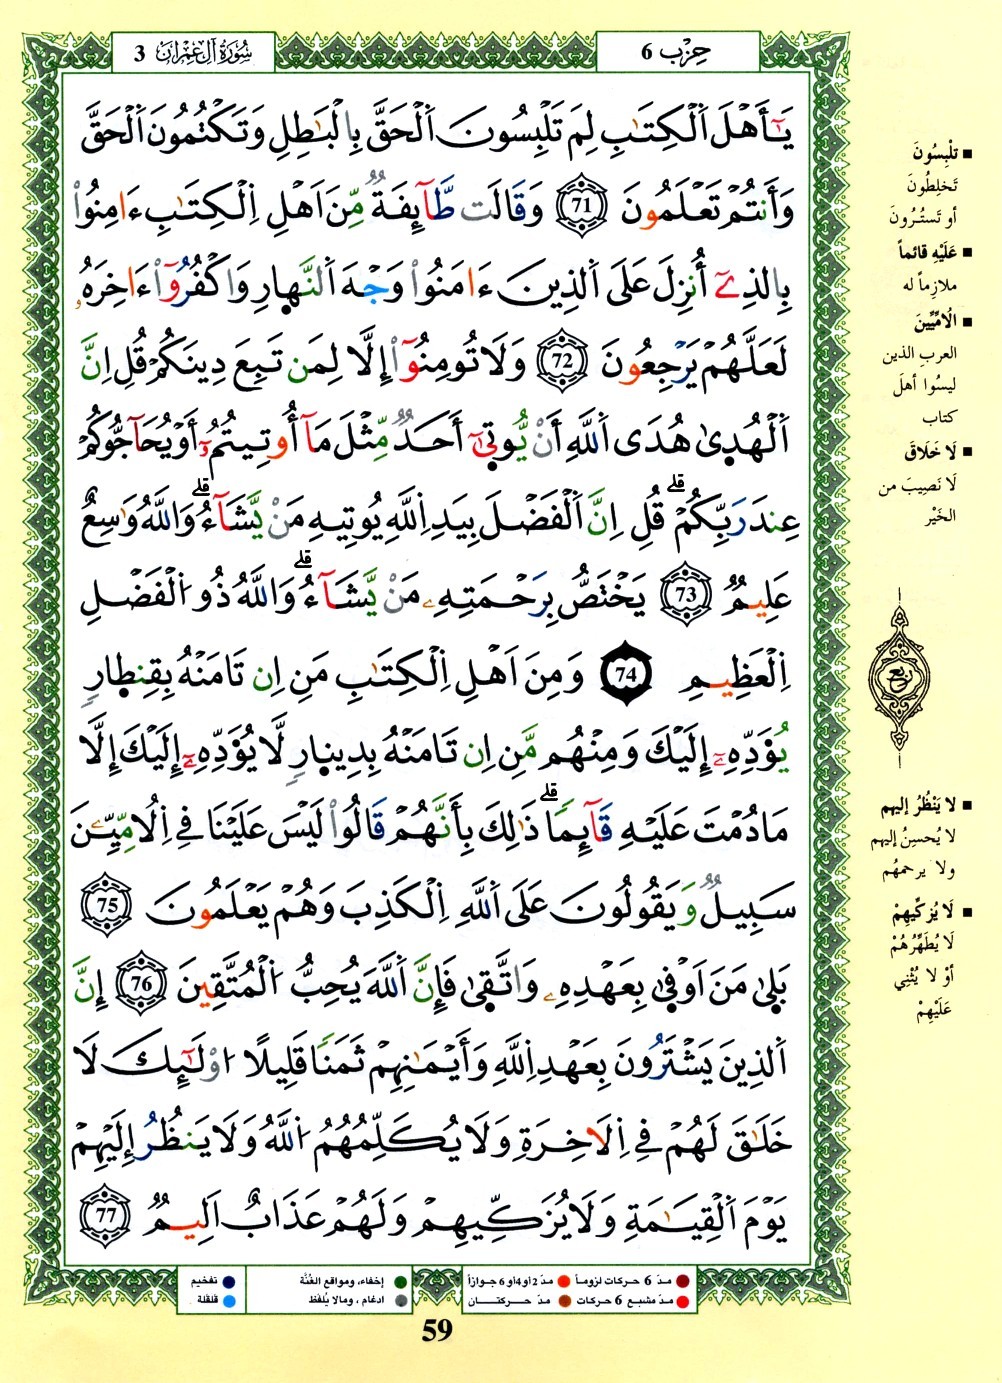 حِزْب 6
سُورَةُ آلِ عِمْرَانَ 3
يَٰٓأَهْلَ اَ۬لْكِتَٰبِ لِمَ تَلْبِسُونَ اَ۬لْحَقَّ بِالْبَٰطِلِ وَتَكْتُمُونَ اَ۬لْحَقَّ
وَأَنتُمْ تَعْلَمُونَ 71 وَقَالَت طَّآئِفَةٞ مِّنَ اَهْلِ اِ۬لْكِتَٰبِ ءَامِنُواْ
بِالذِےٓ أُنزِلَ عَلَي اَ۬لذِينَ ءَامَنُواْ وَجْهَ اَ۬لنَّهارِ وَاكْفُرُوٓاْ ءَاخِرَهُۥ
لَعَلَّهُمْ يَرْجِعُونَ 72 وَلَا تُومِنُوٓاْ إِلَّا لِمَن تَبِعَ دِينَكُمْ قُلِ اِنَّ
اَ۬لْهُدىٰ هُدَى اَ۬للَّهِ أَنْ يُّوتىٰٓ أَحَدٞ مِّثْلَ مَآ أُوتِيتُمُۥٓ أَوْ يُحَآجُّوكُمْ
عِندَ رَبِّكُمْ قلے قُلِ اِنَّ اَ۬لْفَضْلَ بِيَدِ اِ۬للَّهِ يُوتِيهِ مَنْ يَّشَآءُ قلے وَاللَّهُ وَٰسِعٌ
عَلِيمٞ 73 يَخْتَصُّ بِرَحْمَتِهِۦ مَنْ يَّشَآءُ قلے وَاللَّهُ ذُو اُ۬لْفَضْلِ
اِ۬لْعَظِيمِ 74 وَمِنَ اَهْلِ اِ۬لْكِتَٰبِ مَنِ اِن تَامَنْهُ بِقِنطارٖ
يُؤَدِّهِۦٓ إِلَيْكَ وَمِنْهُم مَّنِ اِن تَامَنْهُ بِدِينارٖ لَّا يُؤَدِّهِۦٓ إِلَيْكَ إِلَّا
مَا دُمْتَ عَلَيْهِ قَآئِماٗ قلے ذَٰلِكَ بِأَنَّهُمْ قَالُواْ لَيْسَ عَلَيْنَا فِے اِ۬لُامِّيِّـۧنَ
سَبِيلٞ وَيَقُولُونَ عَلَي اَ۬للَّهِ اِ۬لْكَذِبَ وَهُمْ يَعْلَمُونَ 75
بَلىٰ مَنَ اَوْفىٰ بِعَهْدِهِۦ وَاتَّقىٰ فَإِنَّ اَ۬للَّهَ يُحِبُّ اُ۬لْمُتَّقِينَ 76 إِنَّ
اَ۬لذِينَ يَشْتَرُونَ بِعَهْدِ اِ۬للَّهِ وَأَيْمَٰنِهِمْ ثَمَناٗ قَلِيلًا ا۟وْلَٰٓئِكَ لَا
خَلَٰقَ لَهُمْ فِے اِ۬لَاخِرَةِ وَلَا يُكَلِّمُهُمُ اُ۬للَّهُ وَلَا يَنظُرُ إِلَيْهِمْ
يَوْمَ اَ۬لْقِيَٰمَةِ وَلَا يُزَكِّيهِمْ وَلَهُمْ عَذَابٌ اَلِيمٞ 77
■ تَلْبِسُونَ
تَخلِطُونَ
أو تَستُرُونَ
■ عَلَيْهِ قائماً
ملازِماً له
■ الْامِّيِّينَ
العربِ الذين
ليسُوا أهلَ
كتاب
■ لَا خَلَاقَ
لَا نَصِيبَ من
الخَيْر
ربع
■ لا يَنْظُرُ إليهم
لا يُحسِنُ إليهم
ولا يرحمهُم
■ لَا يُزكِّيهِمْ
لَا يُطَهِّرُهُمْ
أوْ لا يُثْنِي
عَلَيْهِمْ
● مدّ 6 حركات لزوماً ● مدّ 2 أو 4 أو 6 جوازاً
● مدّ مشبع 6 حركات ● مدّ حركتان
● إخفاء، ومواقع الغُنَّة ● تفخيم
● ادغام، ومالا يُلفَظ ● قلقلة
59